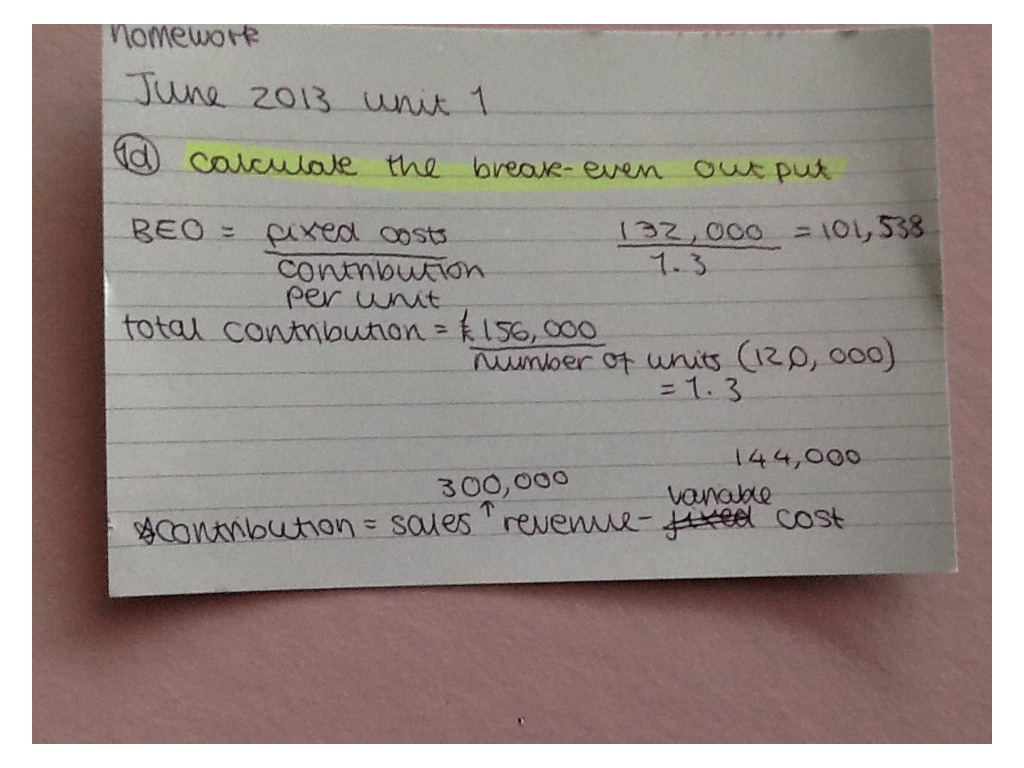 Homework
June 2013 unit 1
1d calculate the break-even output
BEO = fixed costs 132,000 = 101,538
contribution 1.3
per unit
total contribution = £156,000
number of units (120,000)
= 1.3
144,000
300,000 variable
contribution = sales ↑ revenue - fixed cost